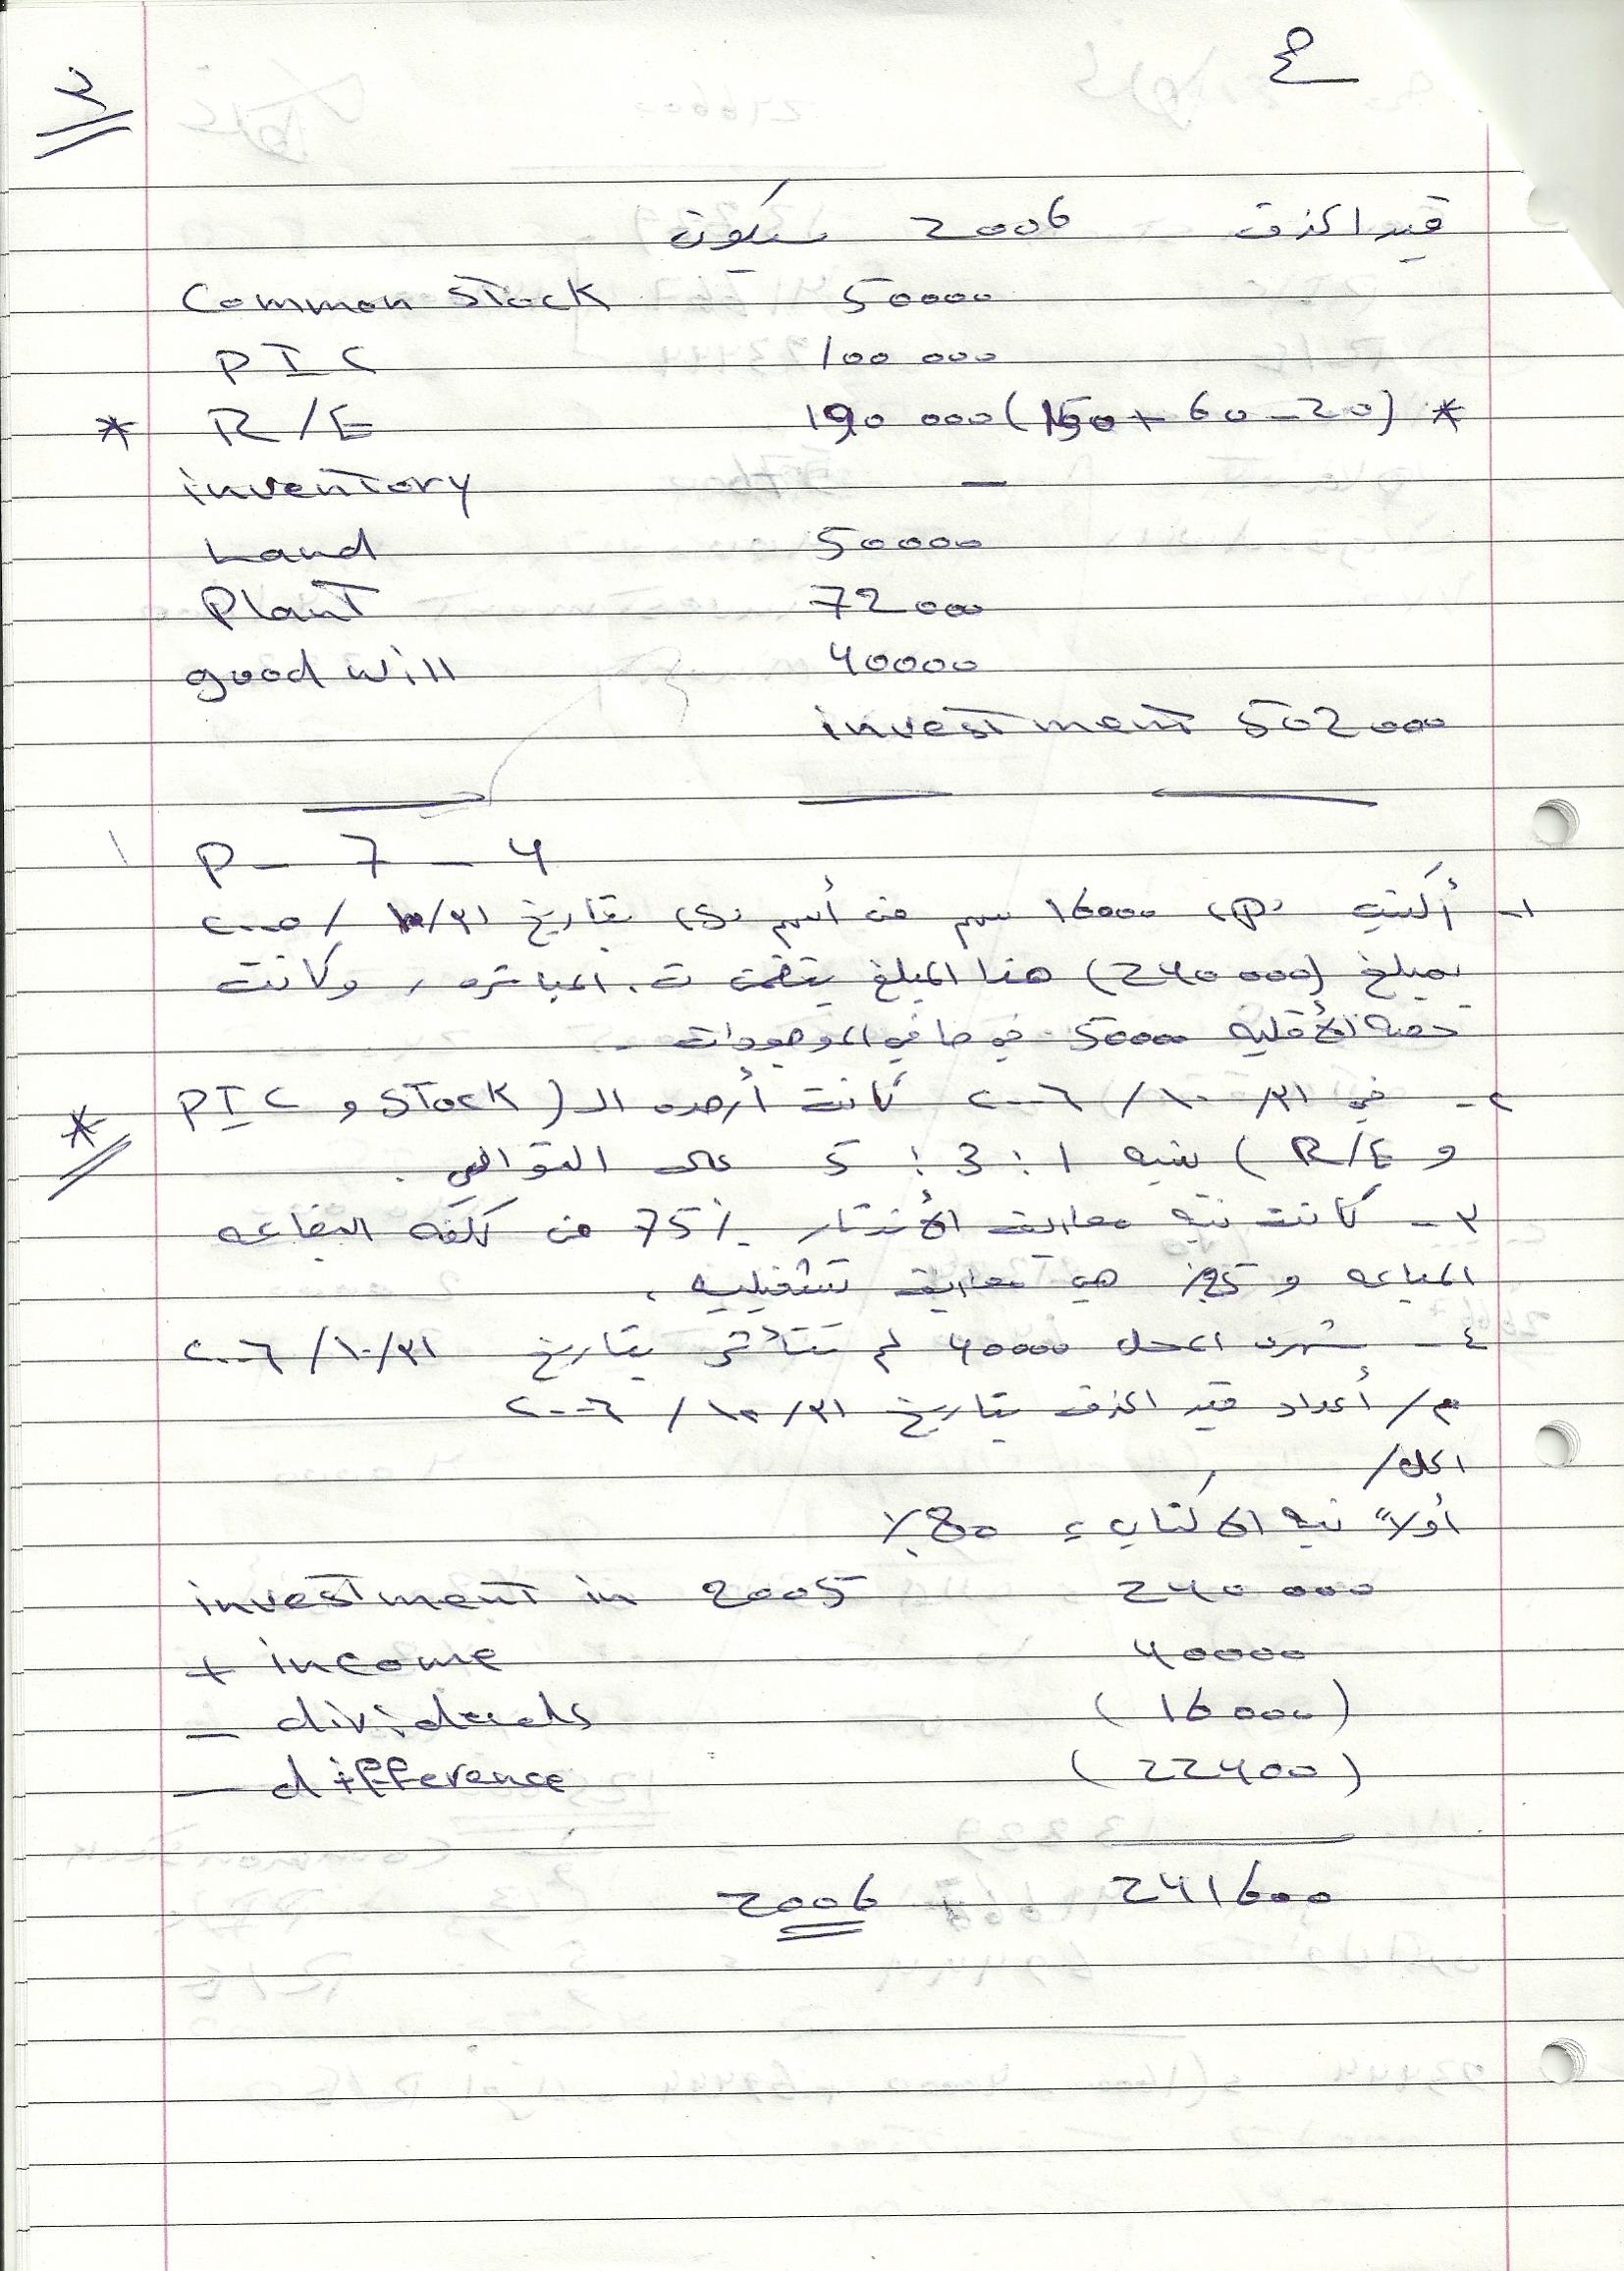 ٣
قيد الحذف 2006 سيكون
Common Stock 50000
PIC 100 000
* R/E 190 000 (150 + 60 - 20) *
inventory -
Land 50000
Plant 72000
good will 40000
investment 502000
P - 7 - 4
١- أكتتبت (P) 16000 سهم من أسهم (S) بتاريخ ٣١/١٠/٢٠٠٥
بمبلغ (240 000) هذا المبلغ يتضمن ت. المباشره , وكانت
حصة الأقليه 50000 في صافي الموجودات .
٢- في ٣١/١٠/٢٠٠٦ كانت أرصده الـ (Stock و PIC
* و R/E) بنسبه 1 : 3 : 5 على التوالي .
٣- كانت نسبه مصاريف الأندثار 75٪ من كلفه البضاعه
المباعه و 25٪ هي مصاريف تشغيليه .
٤- شهره المحل 40000 لم تتأثر بتاريخ ٣١/١٠/٢٠٠٦
م/ أعداد قيد الحذف بتاريخ ٣١/١٠/٢٠٠٦
الحل/
أولاً نسبه الاكتتاب = 80٪
investment in 2005 240 000
+ income 40000
- dividends (16000)
- difference (22400)
2006 241600